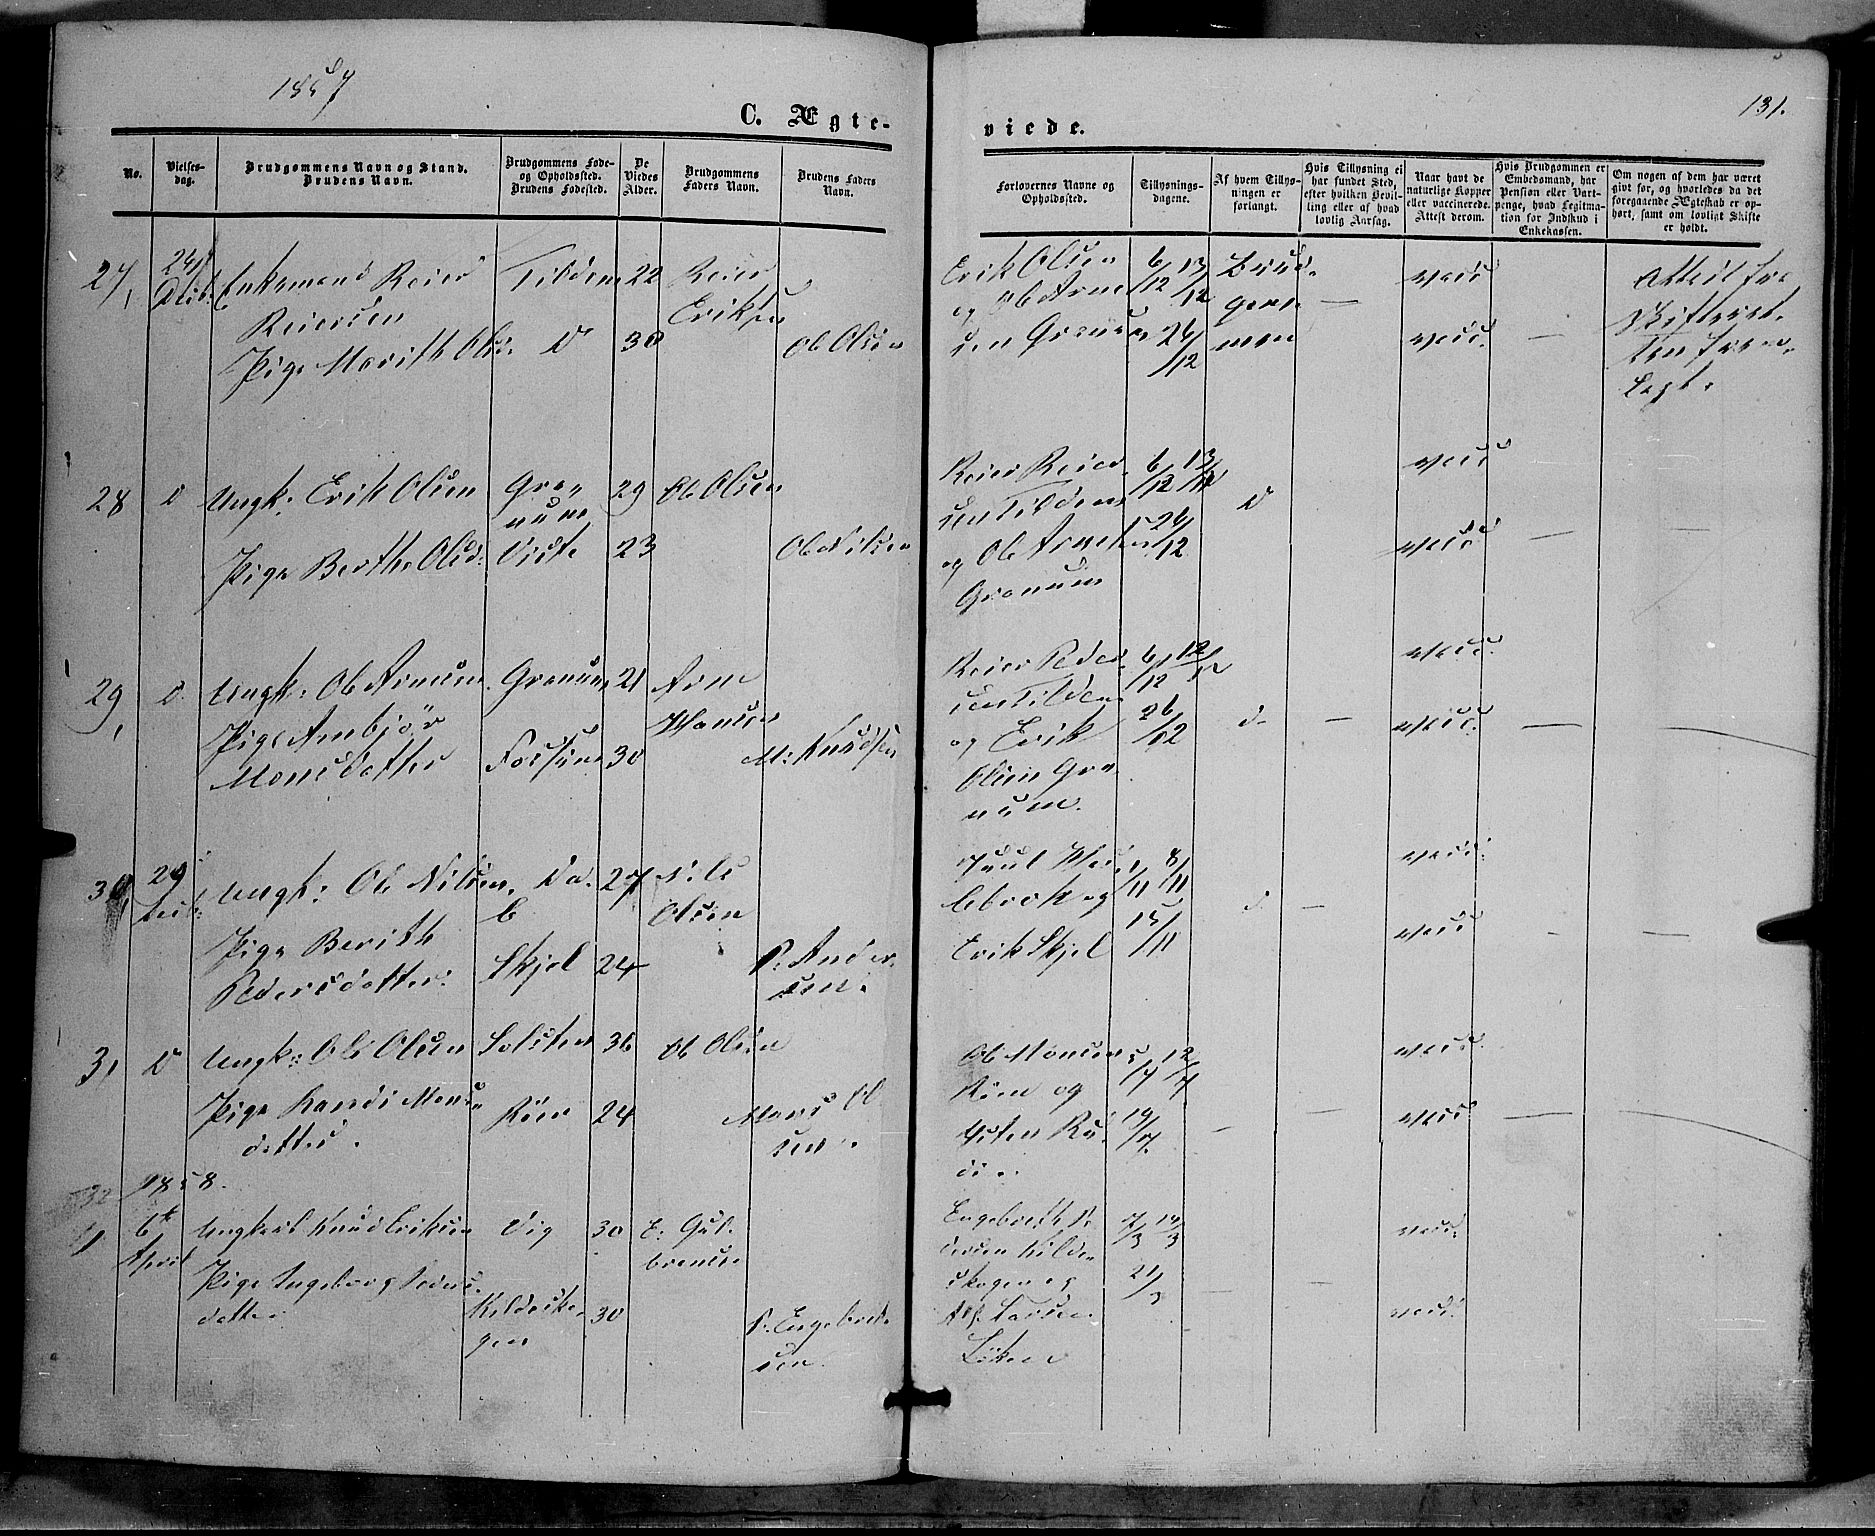 1857
131.
C. Ægte-
viede.
No.
Vielses-
dag.
Brudgommens Navn og Stand.
Brudens Navn.
Brudgommens Føde-
og Opholdssted.
Brudens Fødested.
De
Viedes
Alder.
Brudgommens
Faders Navn.
Brudens Faders
Navn.
Forlovernes Navne og
Opholdssted.
Tillysnings-
dagene.
Af hvem Tillys-
ningen er
forlangt.
Hvis Tillysning ei
har fundet Sted,
efter hvilken Bevil-
ling eller af hvad
lovlig Aarsag.
Naar havt de
naturlige Kopper
eller vaccinerede.
Attest derom.
Hvis Brudgommen er
Embedsmand, har
Pension eller Vart-
penge, hvad Legitima-
tion for Indskud i
Enkekassen.
Om nogen af dem har været
gift før, og hvorledes da det
foregaaende Ægteskab er op-
hørt, samt om lovligt Skifte
er holdt.
27,
24
Enkemand Reier
Reiersen
Pige Marith Olsd.
Tilden
22
30
Reier
Eriksen
Ole Olsen
Erik Olsen
og Ole Arne
sen Granum
6/12 13/12
26/12
Brud-
gom-
men
vacc
vacc.
Attest fra
Skifteret-
ten frem-
lagt.
28
d
Ungk: Erik Olsen
Gra-
num
29
Ole Olsen
Pige Berthe Olsd:
Viste
23
Ole Nilsen
Reier Reier
sen Tilden
og Ole Arnesen
Granum
6/12 13/12
26/12
d
vacc
vacc
29,
d.
Ungk: Ole Arnesen
Granum
21
Arne
Hansen
Pige Ambjør
Monsdatter
Fossum
30
M: Knudsen
Reier Reier
sen Tilden
og Erik
Olsen Gra
num.
6/12
26/12
d.
vacc.
vacc.
30,
29
Ungk: Ole Nilsen.
27
Nils
Olsen
Pige Berith
Pedersdatter.
Skjel
24
P: Ander-
sen.
Juul
og
Erik Skjel
1/11 8/11
15/11
d
vacc.
vacc
31
d
Ungk: Ole Olsen
36
Ole Olsen
Pige Randi Mons
datter.
Røen
24
Mons Ol
sen.
Ole Monsen
Røen og
Østen Ru
di.
5/7 12/7
19/7.
vacc.
vacc
32
1858.
1
6te
April
Ungkarl Knud Eriksen
Vig
30
E: Gul-
brandsen
Pige Ingeborg Peders-
datter
Kildesko-
gen
30
P: Engebret-
sen.
Engebreth Pe
dersen Kilde-
skogen og
Løken
7/3 14/3
21/3
vacc.
vacc.